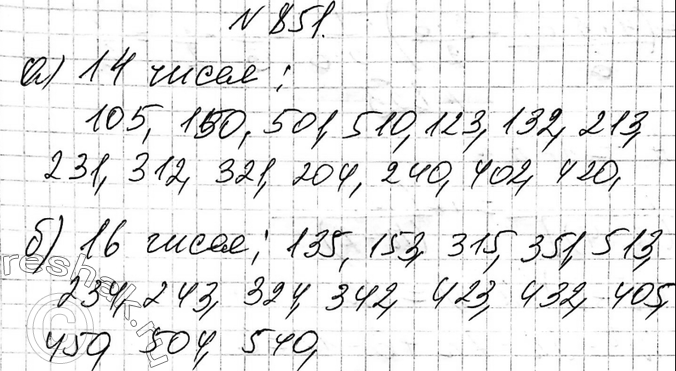 № 851.
а) 14 чисел;
105, 150, 501, 510, 123, 132, 213,
231, 312, 321, 204, 240, 402, 420,
б) 16 чисел; 135, 153, 315, 351, 513,
234, 243, 324, 342, 423, 432, 405,
450, 504, 540,
reshak.ru